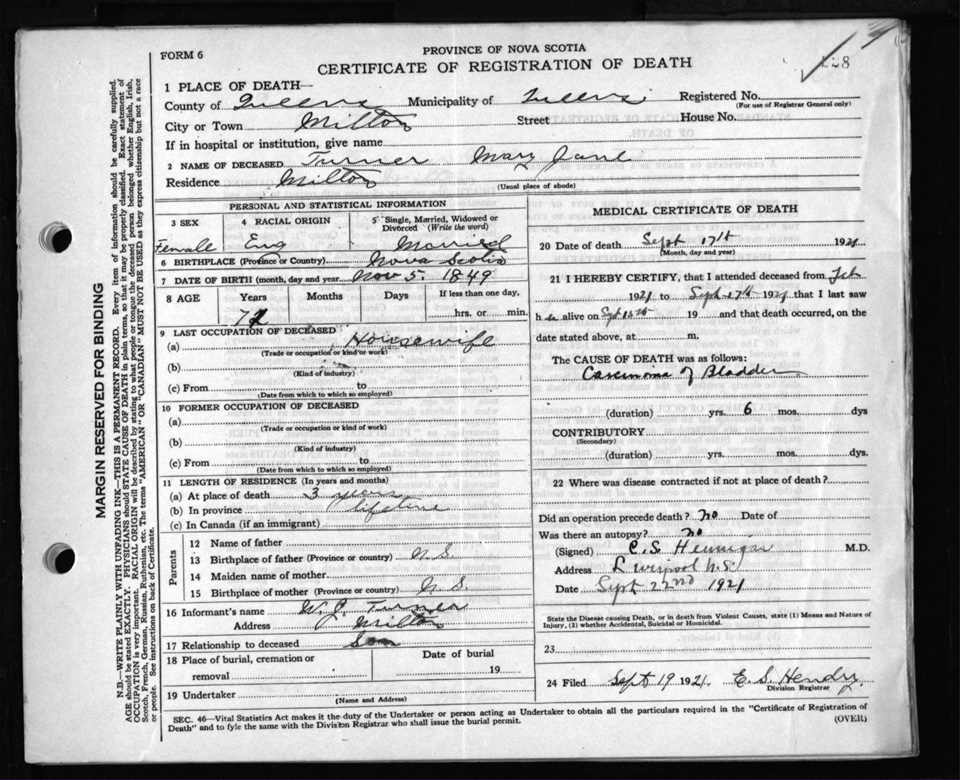 FORM 6
PROVINCE OF NOVA SCOTIA
CERTIFICATE OF REGISTRATION OF DEATH
228
1 PLACE OF DEATH—
County of Queens Municipality of Queens Registered No.
(For use of Registrar General only)
City or Town Milton Street House No.
If in hospital or institution, give name
2 NAME OF DECEASED Turner Mary Jane
Residence Milton
(Usual place of abode)
PERSONAL AND STATISTICAL INFORMATION
3 SEX 4 RACIAL ORIGIN 5 Single, Married, Widowed or Divorced (Write the word)
Female Eng Married
6 BIRTHPLACE (Province or Country) Nova Scotia
7 DATE OF BIRTH (month, day and year) Nov 5. 1849
8 AGE Years Months Days If less than one day,
72 hrs. or min.
9 LAST OCCUPATION OF DECEASED
(a) Housewife
(Trade or occupation or kind of work)
(b)
(Kind of industry)
(c) From to
(Date from which to which so employed)
10 FORMER OCCUPATION OF DECEASED
(a)
(Trade or occupation or kind of work)
(b)
(Kind of industry)
(c) From to
(Date from which to which so employed)
11 LENGTH OF RESIDENCE (In years and months)
(a) At place of death 3 years
(b) In province lifetime
(c) In Canada (if an immigrant)
Parents
12 Name of father
13 Birthplace of father (Province or country) N.S.
14 Maiden name of mother
15 Birthplace of mother (Province or country) N.S.
16 Informant's name W. J. Turner
Address Milton
17 Relationship to deceased Son
18 Place of burial, cremation or removal Date of burial
19
19 Undertaker
(Name and Address)
MEDICAL CERTIFICATE OF DEATH
20 Date of death Sept 17th 1921
(Month, day and year)
21 I HEREBY CERTIFY, that I attended deceased from Feb
1921 to Sept 17th 1921 that I last saw
h er alive on Sept 15th 19 and that death occurred, on the
date stated above, at m.
The CAUSE OF DEATH was as follows:
Carcinoma of Bladder
(duration) yrs. 6 mos. dys
CONTRIBUTORY
(Secondary)
(duration) yrs. mos. dys.
22 Where was disease contracted if not at place of death?
Did an operation precede death? no Date of
Was there an autopsy? no
(Signed) C. S. Hennigar M.D.
Address Liverpool N.S.
Date Sept 22nd 1921
State the Disease causing Death, or in death from Violent Causes, state (1) Means and Nature of
Injury, (2) whether Accidental, Suicidal or Homicidal.
23
24 Filed Sept 19 1921 E. S. Hendry
Division Registrar
SEC. 46—Vital Statistics Act makes it the duty of the Undertaker or person acting as Undertaker to obtain all the particulars required in the "Certificate of Registration of
Death" and to fyle the same with the Division Registrar who shall issue the burial permit.
(OVER)
MARGIN RESERVED FOR BINDING
N.B.—WRITE PLAINLY WITH UNFADING INK—THIS IS A PERMANENT RECORD. Every item of information should be carefully supplied.
AGE should be stated EXACTLY. PHYSICIANS should STATE CAUSE OF DEATH in plain terms, so that it may be properly classified. Exact statement of
OCCUPATION is very important. RACIAL ORIGIN will be described by stating to what people or tongue the deceased person belonged whether English, Irish,
Scotch, French, German, Russian, Ruthenian, etc. The terms "AMERICAN" or "CANADIAN" MUST NOT BE USED as they express citizenship but not a race
or people. See instructions on back of Certificate.